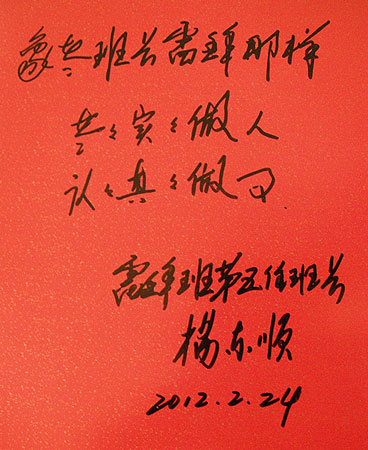 象老班长雷锋那样
老々实々做人
认々真々做事
雷锋班第五任班长
楊东顺
2012.2.24